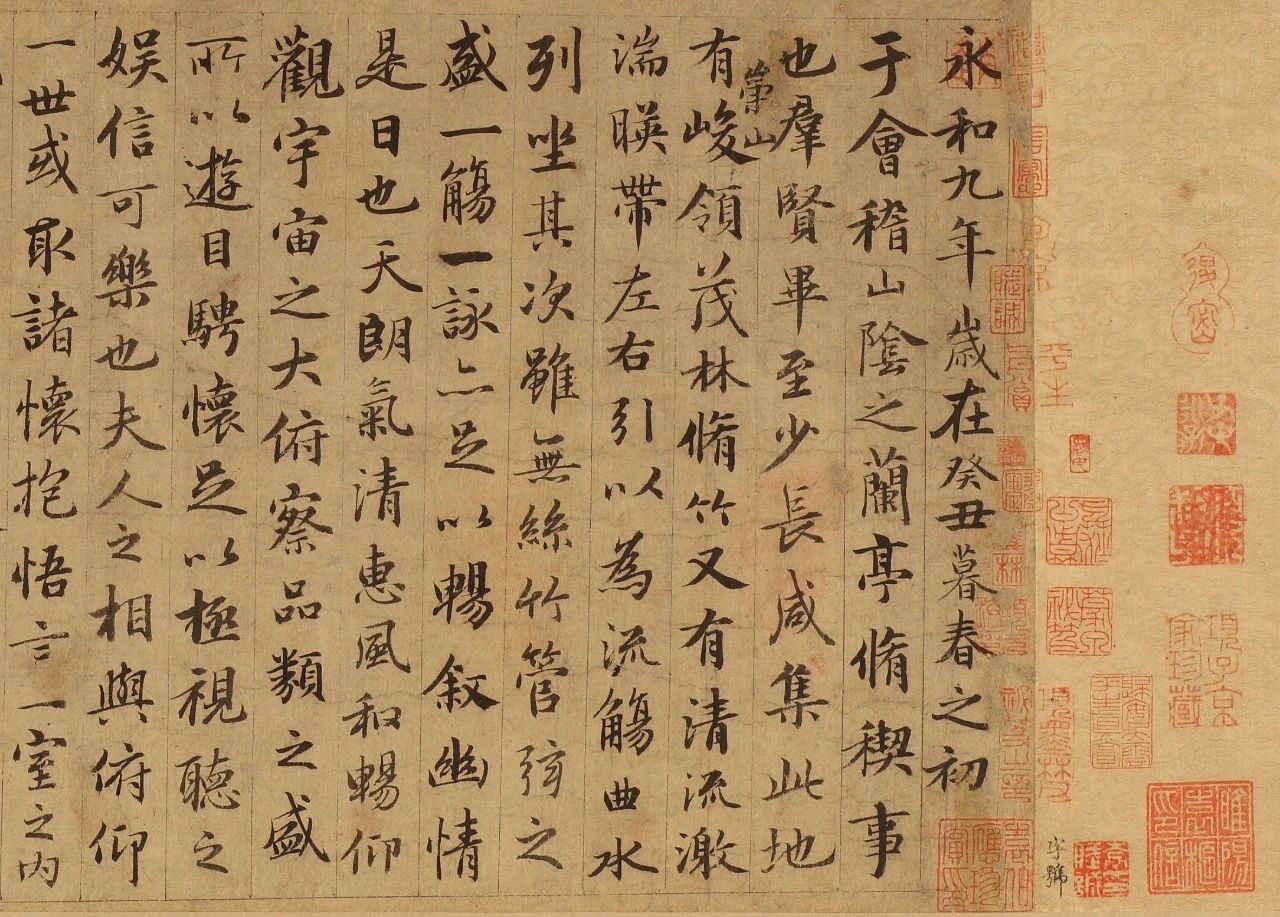 項子京
家珍藏
字號
永和九年歲在癸丑暮春之初
于會稽山陰之蘭亭脩稧事
也羣賢畢至少長咸集此地
崇山
有峻領茂林脩竹又有清流激
湍暎帶左右引以為流觴曲水
列坐其次雖無絲竹管弦之
盛一觴一詠亦足以暢敘幽情
是日也天朗氣清惠風和暢仰
觀宇宙之大俯察品類之盛
所以遊目騁懷足以極視聽之
娛信可樂也夫人之相與俯仰
一世或取諸懷抱悟言一室之內